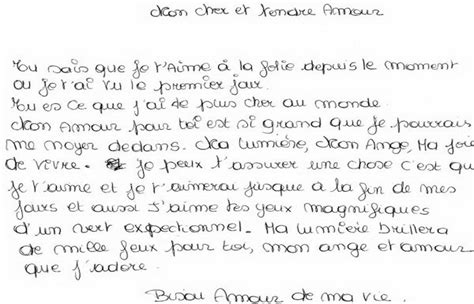 Mon cher et tendre Amour
Tu sais que je t'Aime à la folie depuis le moment
ou je t'ai vu le premier jour.
Tu es ce que j'ai de plus cher au monde.
Mon Amour pour toi est si grand que je pourrais
me noyer dedans. Ma lumière, Mon Ange, Ma joie
de vivre. je peux t'assurer une chose c'est que
je t'aime et je t'aimerai jusque à la fin de mes
jours et aussi J'aime tes yeux magnifiques
d'un vert expectionnel. Ma lumière brillera
de mille feux pour toi, mon ange et amour
que j'adore.
Bisou Amour de ma vie.